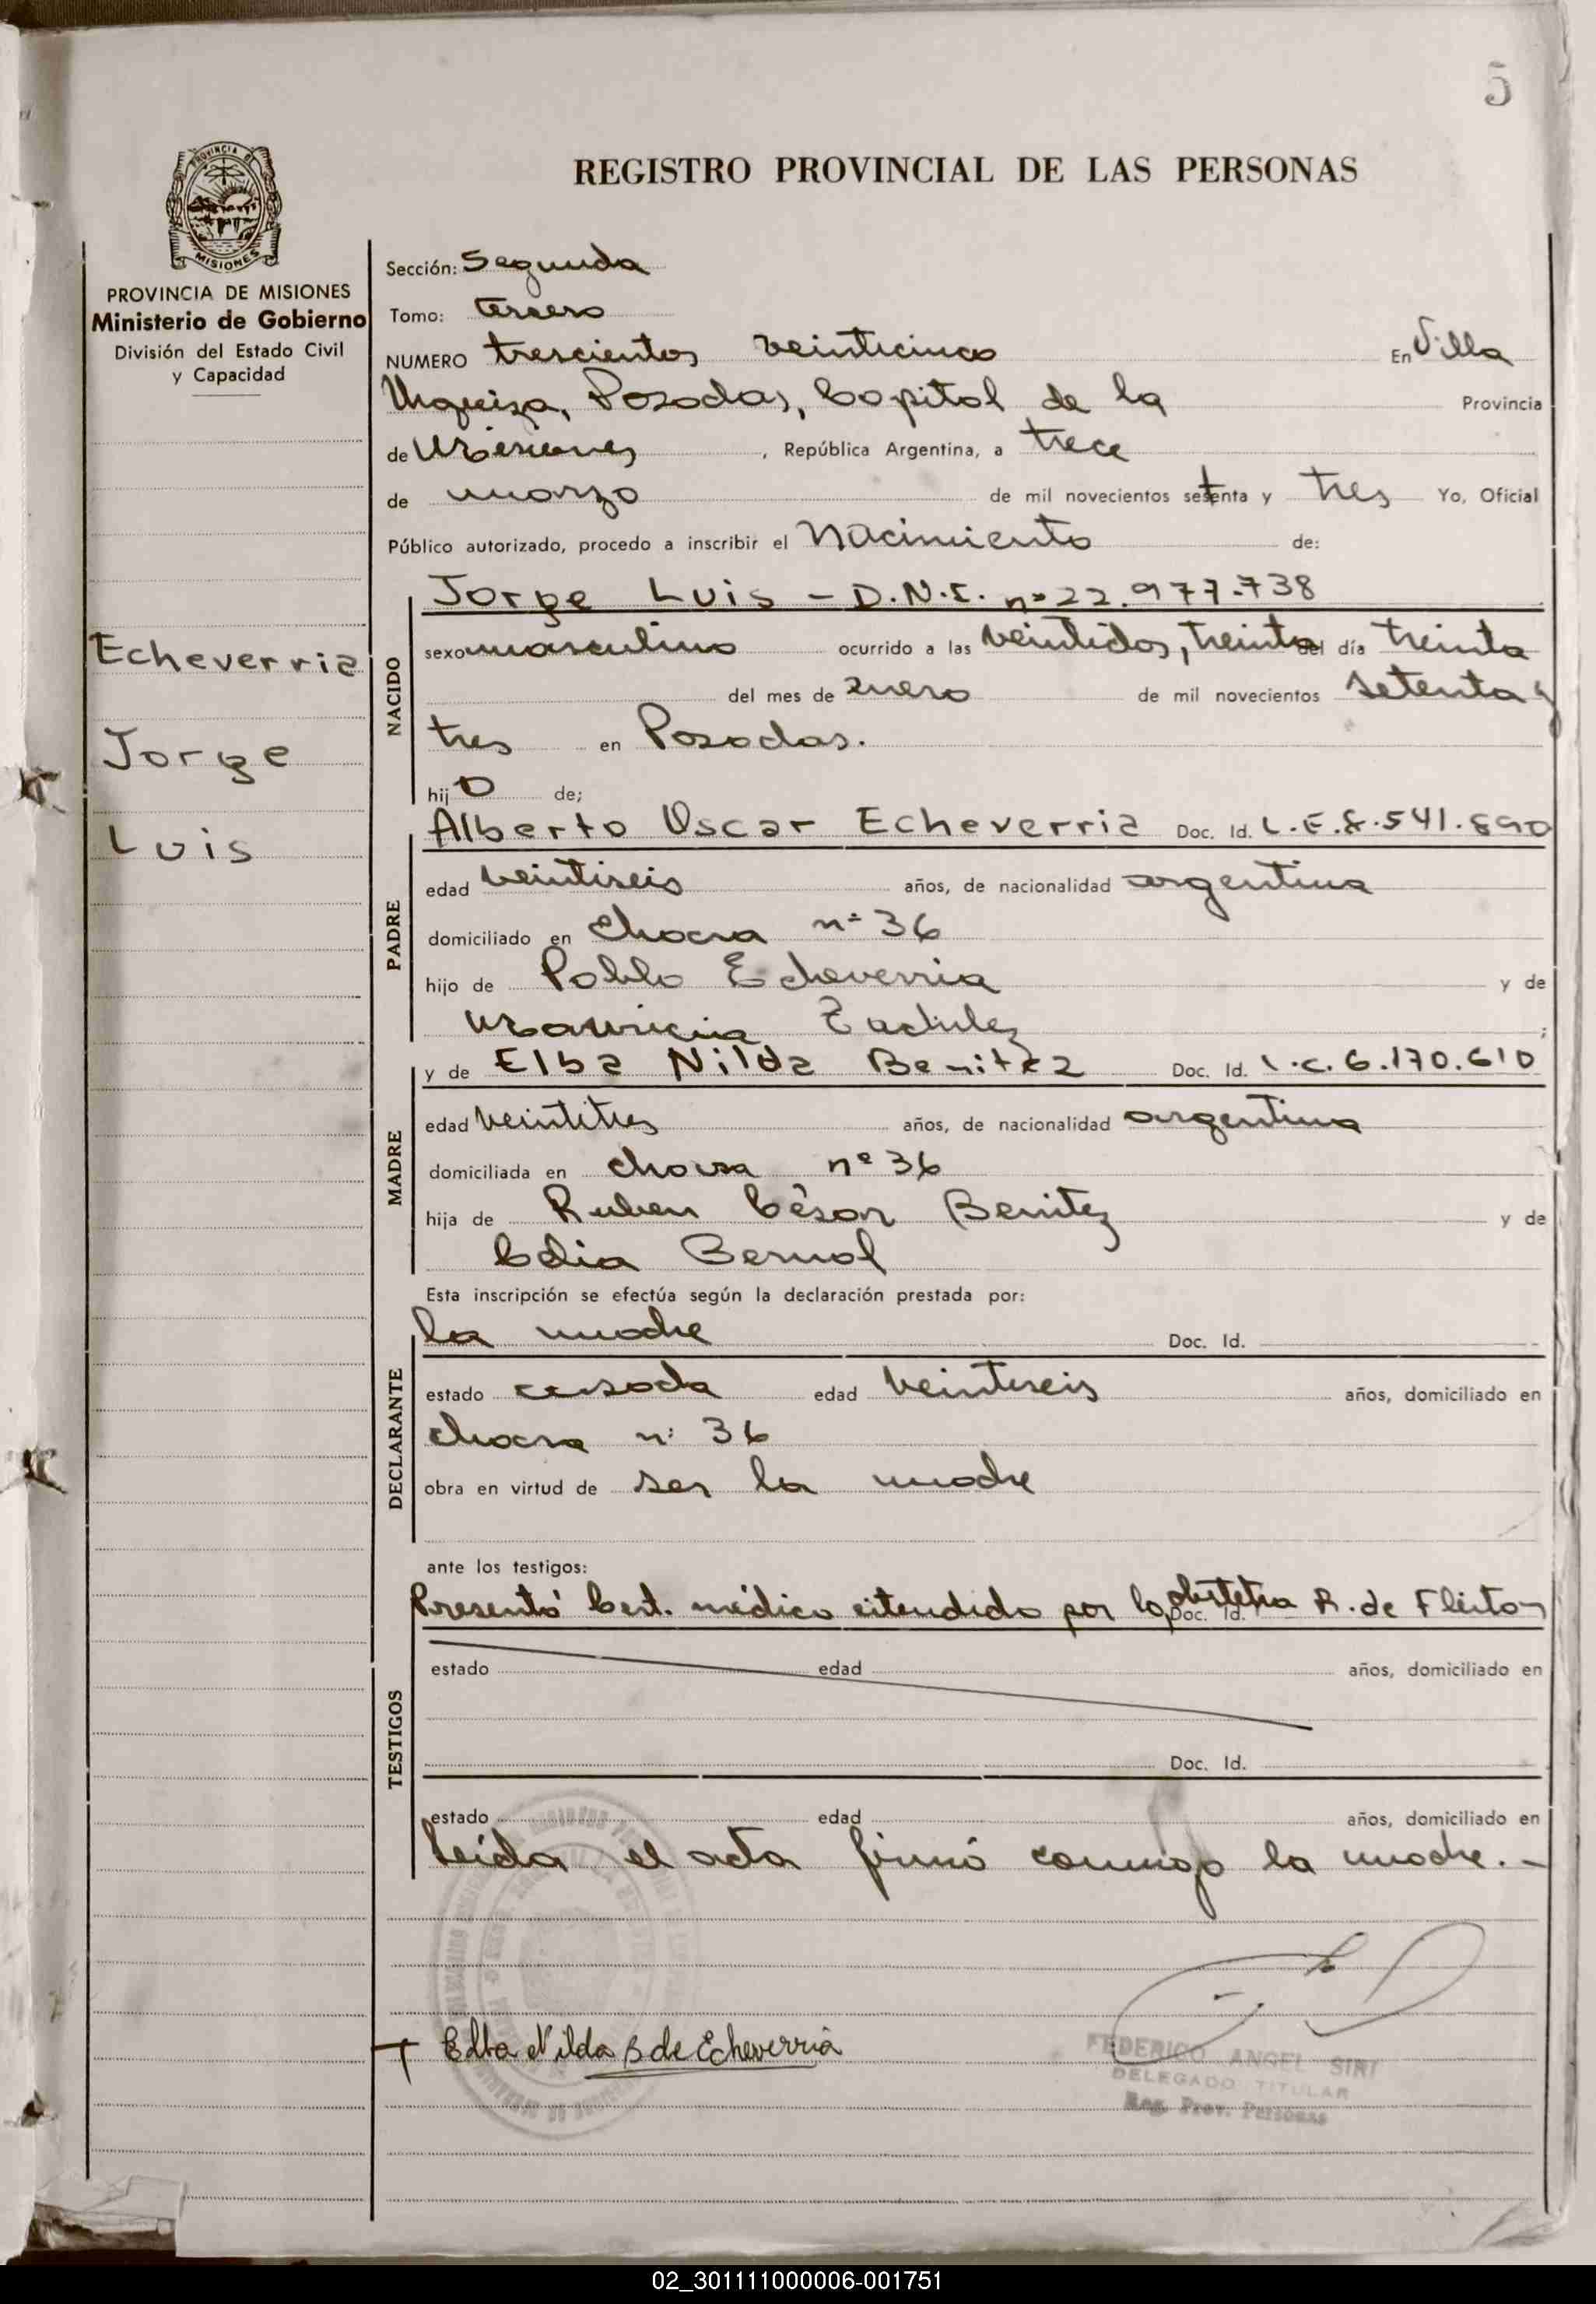 5
REGISTRO PROVINCIAL DE LAS PERSONAS
PROVINCIA DE MISIONES
Ministerio de Gobierno
División del Estado Civil
y Capacidad
Echeverria
Jorge
Luis
Sección: Segunda
Tomo: tercero
NUMERO trescientos veinticinco En Villa
Urquiza, Posadas, Capital de la Provincia
de Misiones, República Argentina, a trece
de marzo de mil novecientos setenta y tres Yo, Oficial
Público autorizado, procedo a inscribir el Nacimiento de:
NACIDO
Jorge Luis - D.N.I. nº 22.977.738
sexo masculino ocurrido a las veintidos, treinta del día treinta
del mes de Enero de mil novecientos setenta y
tres en Posadas.
hijo de;
PADRE
Alberto Oscar Echeverria Doc. Id. L.E. 8.541.890
edad veintiseis años, de nacionalidad argentina
domiciliado en Chacra nº 36
hijo de Pablo Echeverria y de
Mauricia ;
MADRE
y de Elba Nilda Benitez Doc. Id. L.C. 6.170.610
edad veintitres años, de nacionalidad argentina
domiciliada en chacra nº 36
hija de Ruben César Benitez y de
Celia Bernal
Esta inscripción se efectúa según la declaración prestada por:
DECLARANTE
la madre Doc. Id.
estado casada edad veintiseis años, domiciliado en
chacra n: 36
obra en virtud de ser la madre
ante los testigos:
TESTIGOS
Presentó Cert. médico extendido por la obstetra R. de Fleitas Doc. Id.
estado edad años, domiciliado en
Doc. Id.
estado edad años, domiciliado en
Leida el acta firmó conmigo la madre. -
Elba Nilda B de Echeverria
FEDERICO ANGEL SIRI
DELEGADO TITULAR
Reg. Prov. Personas
02_301111000006-001751